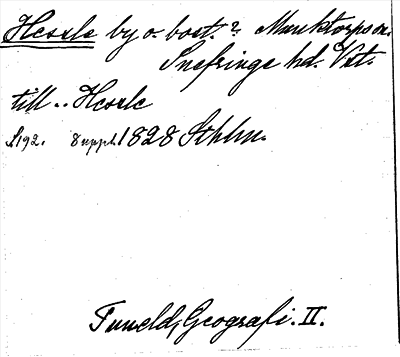 Hessle by o. bost. ? Munktorps sn.
Snefringe hd. Vstm.
till .. Hessle
s. 192. 8 uppl. 1828 Sthlm.
Tuneld, Geografi. II.